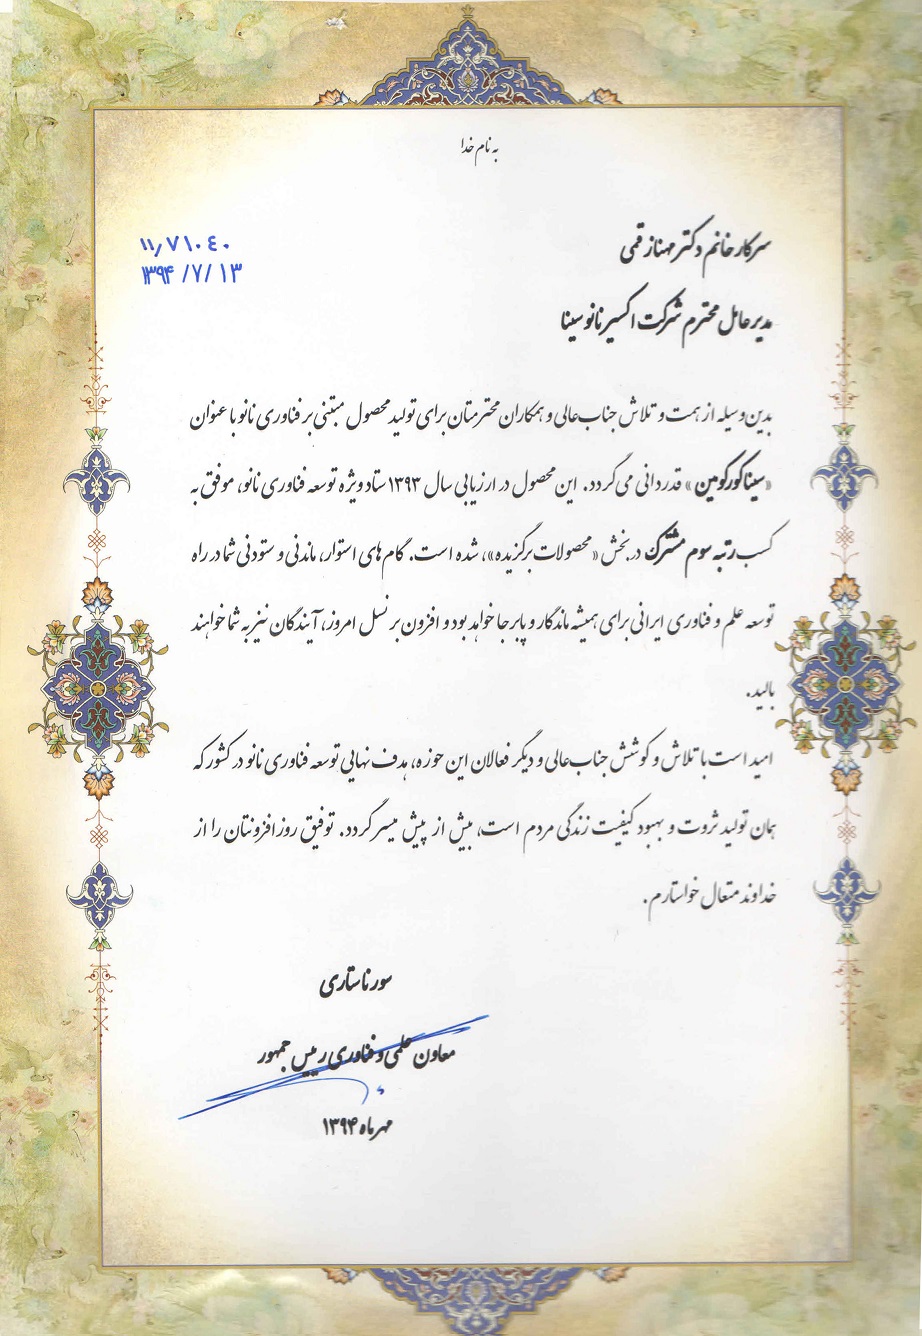 به نام خدا
سرکار خانم دکتر مهناز قمی
۱۱/۷۱۰۴۰
۱۳۹۴/۷/۱۳
مدیرعامل محترم شرکت اکسیر نانو سینا
بدین‌وسیله از همت و تلاش جناب‌عالی و همکاران محترمتان برای تولید محصول مبتنی بر فناوری نانو با عنوان
«سیناکورکومین» قدردانی می‌گردد. این محصول در ارزیابی سال ۱۳۹۳ ستاد ویژه توسعه فناوری نانو، موفق به
کسب رتبه سوم مشترک در بخش «محصولات برگزیده»، شده است. گام‌های استوار، ماندنی و ستودنی شما در راه
توسعه علم و فناوری ایرانی برای همیشه ماندگار و پابرجا خواهد بود و افزون بر نسل امروز، آیندگان نیز به شما خواهند
بالید.
امید است با تلاش و کوشش جناب‌عالی و دیگر فعالان این حوزه، هدف نهایی توسعه فناوری نانو در کشور که
همان تولید ثروت و بهبود کیفیت زندگی مردم است، بیش از پیش میسر گردد. توفیق روزافزونتان را از
خداوند متعال خواستارم.
سورنا ستاری
معاون علمی و فناوری رییس جمهور
مهرماه ۱۳۹۴